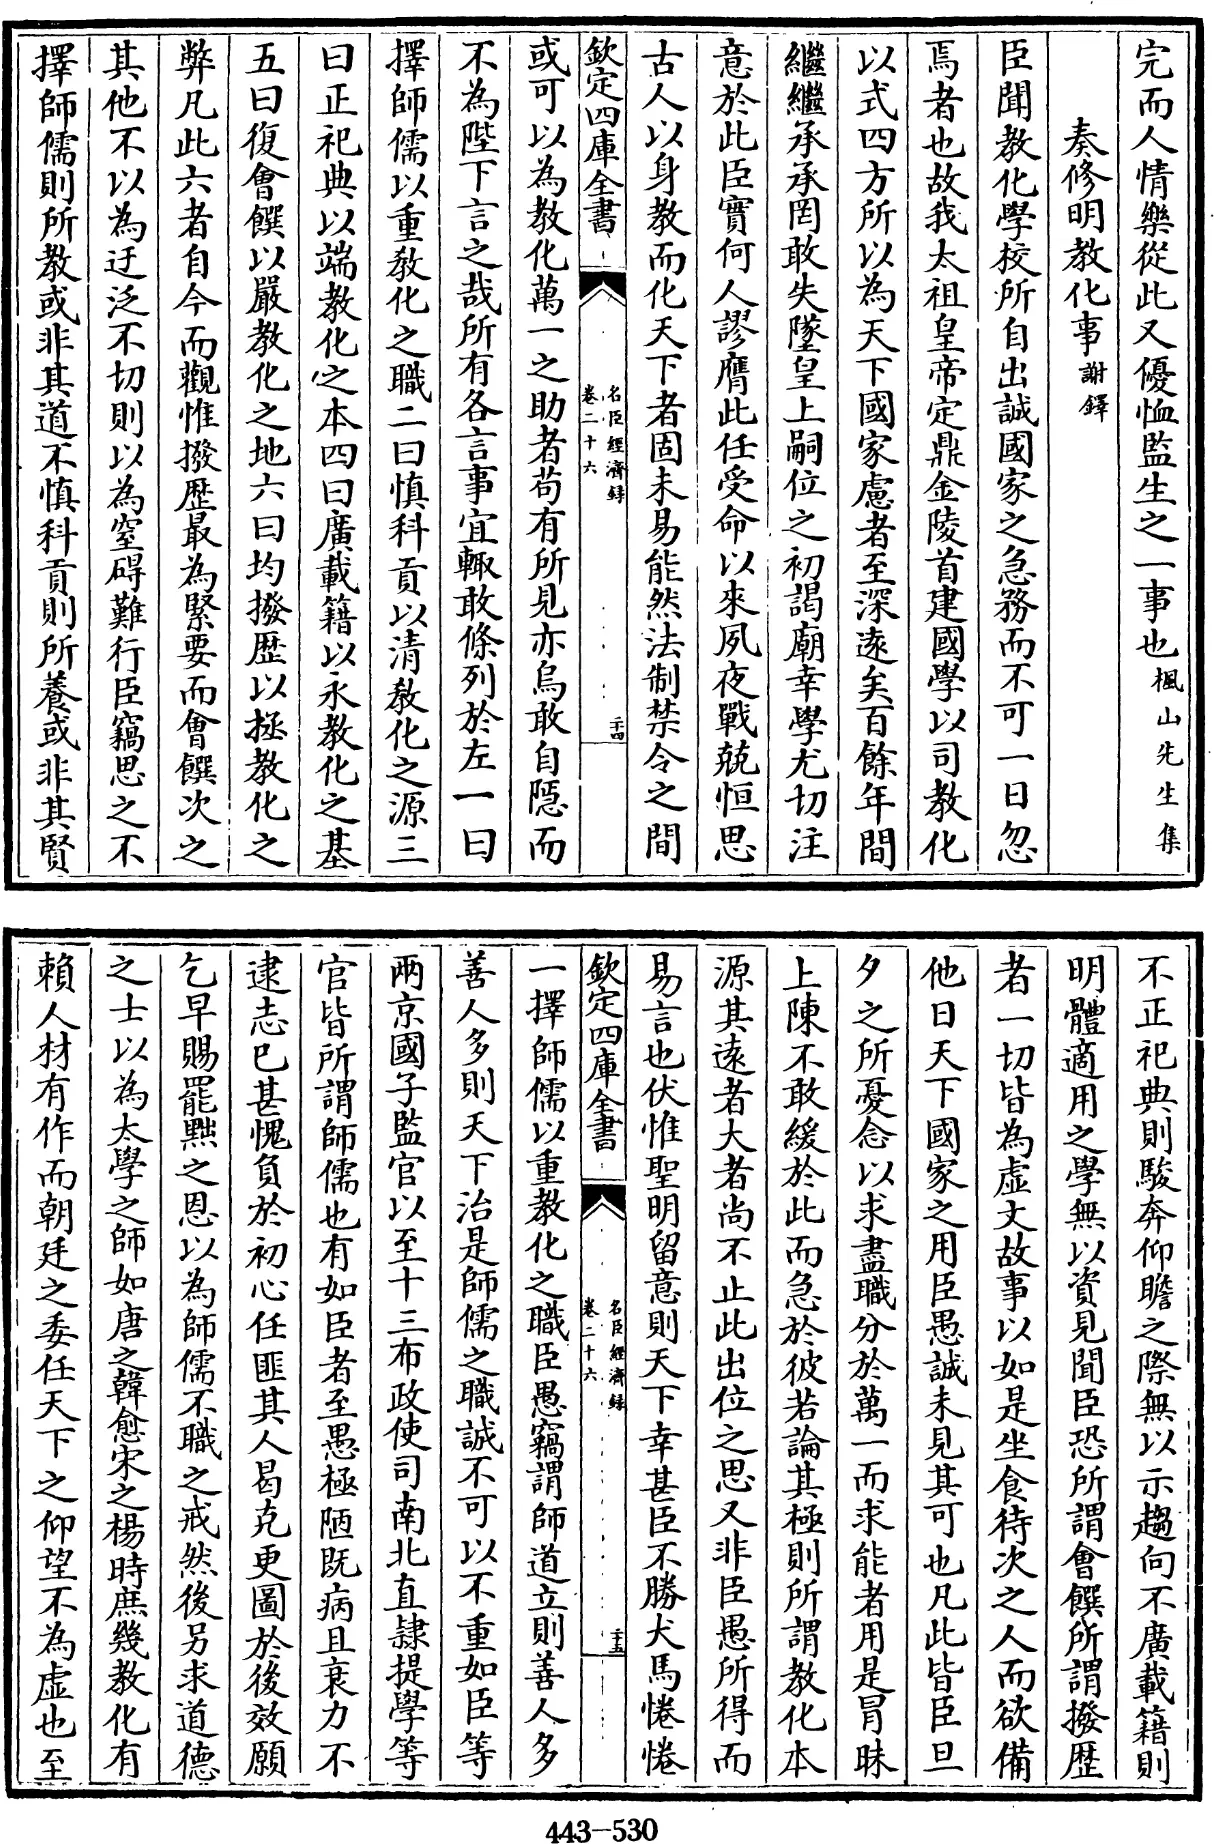 完而人情樂從此又優恤監生之一事也楓山先生集
奏修明教化事謝鐸
臣聞教化學校所自出誠國家之急務而不可一日忽
焉者也故我太祖皇帝定鼎金陵首建國學以司教化
以式四方所以為天下國家慮者至深遠矣百餘年間
繼繼承承罔敢失墜皇上嗣位之初謁廟幸學尤切注
意於此臣實何人謬膺此任受命以來夙夜戰兢恒思
古人以身教而化天下者固未易能然法制禁令之間
欽定四庫全書
名臣經濟録
卷二十六
二十四
或可以為教化萬一之助者苟有所見亦烏敢自隱而
不為陛下言之哉所有各言事宜輒敢條列於左一曰
擇師儒以重教化之職二曰慎科貢以清教化之源三
曰正祀典以端教化之本四曰廣載籍以永教化之基
五曰復會饌以嚴教化之地六曰均撥歷以拯教化之
弊凡此六者自今而觀惟撥歷最為緊要而會饌次之
其他不以為迂泛不切則以為窒碍難行臣竊思之不
擇師儒則所教或非其道不慎科貢則所養或非其賢
不正祀典則駿奔仰瞻之際無以示趨向不廣載籍則
明體適用之學無以資見聞臣恐所謂會饌所謂撥歷
者一切皆為虛文故事以如是坐食待次之人而欲備
他日天下國家之用臣愚誠未見其可也凡此皆臣旦
夕之所憂念以求盡職分於萬一而求能者用是冒昧
上陳不敢緩於此而急於彼若論其極則所謂教化本
源其遠者大者尚不止此出位之思又非臣愚所得而
易言也伏惟聖明留意則天下幸甚臣不勝犬馬惓惓
欽定四庫全書
名臣經濟録
卷二十六
二十五
一擇師儒以重教化之職臣愚竊謂師道立則善人多
善人多則天下治是師儒之職誠不可以不重如臣等
兩京國子監官以至十三布政使司南北直隸提學等
官皆所謂師儒也有如臣者至愚極陋既病且衰力不
逮志已甚愧負於初心任匪其人曷克更圖於後效願
乞早賜罷黜之恩以為師儒不職之戒然後另求道德
之士以為太學之師如唐之韓愈宋之楊時庶幾教化有
賴人材有作而朝廷之委任天下之仰望不為虛也至
443-530